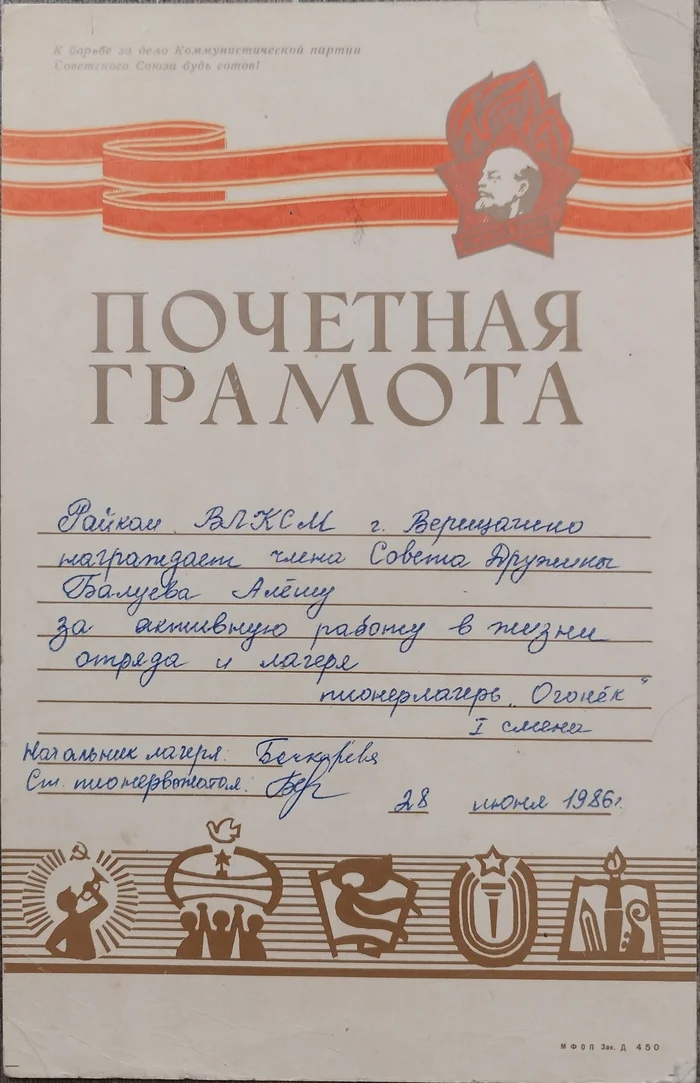 К борьбе за дело Коммунистической партии
Советского Союза будь готов!
ПОЧЕТНАЯ
ГРАМОТА
Райком ВЛКСМ г. Верещагино
награждает члена Совета Дружины
Балуева Алёшу
за активную работу в жизни
отряда и лагеря
пионерлагерь „Огонёк"
I смена
Начальник лагеря:
Ст. пионервожатая:
28 июня 1986г.
МФОП Зак. Д 450